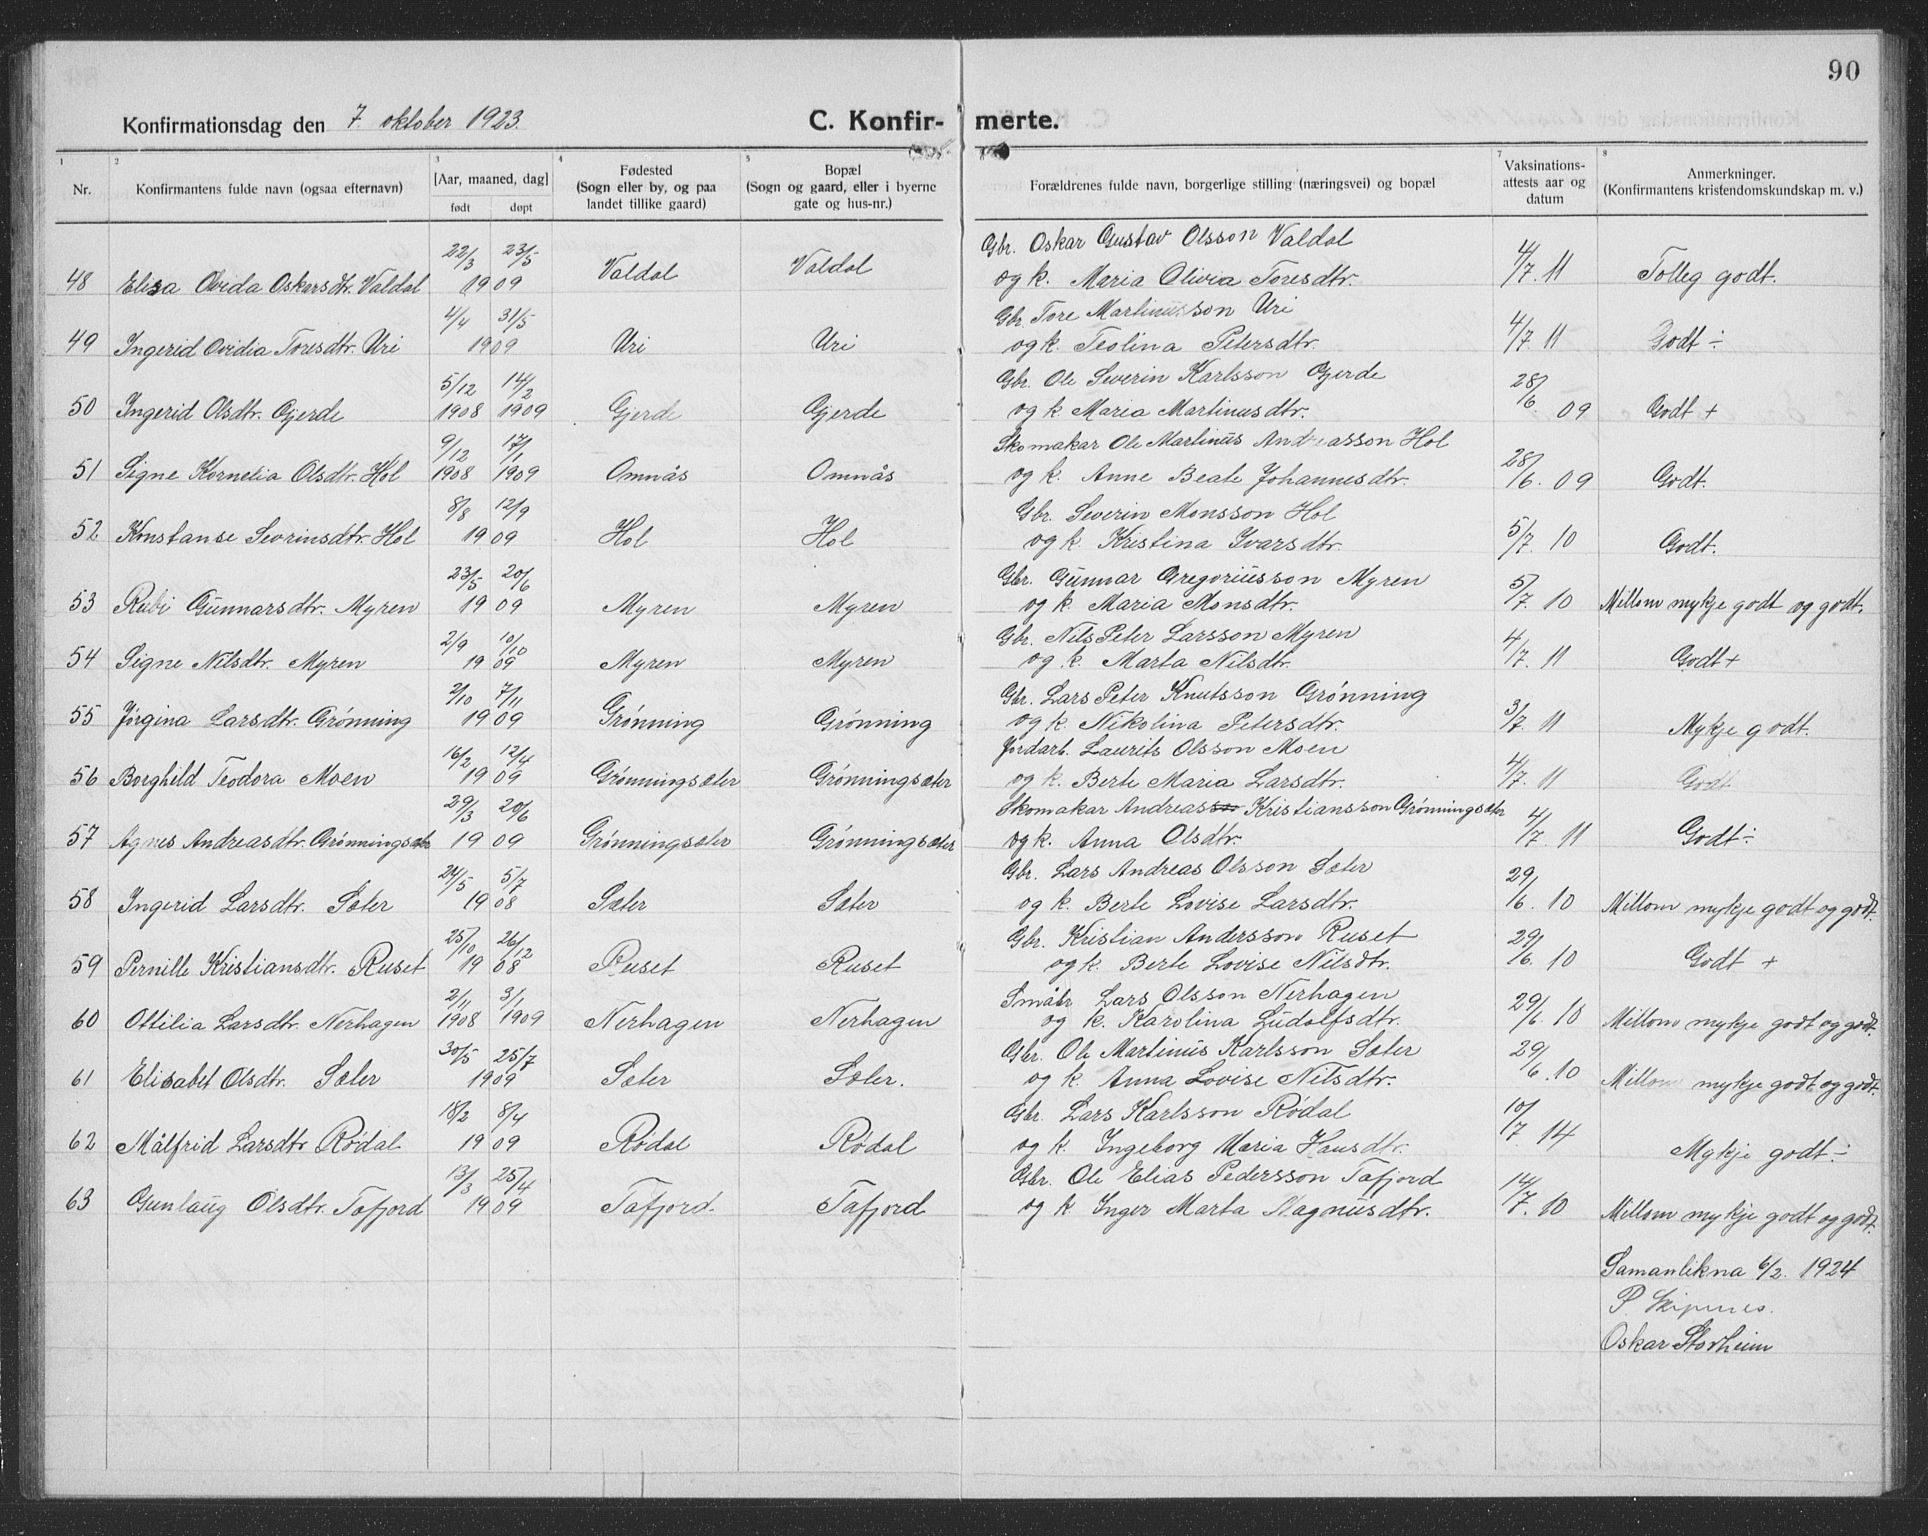 90
Konfirmationsdag den 7. oktober 1923. C. Konfirmerte.
1 2 3 4 5 7 8
Nr. Konfirmantens fulde navn (ogsaa efternavn) [Aar, maaned, dag] født døpt Fødested (Sogn eller by, og paa landet tillike gaard) Bopæl (Sogn og gaard, eller i byerne gate og hus-nr.) Forældrenes fulde navn, borgerlige stilling (næringsvei) og bopæl Vaksinations-attests aar og datum Anmerkninger. (Konfirmantens kristendomskundskap m. v.)
22/3 23/5 Gbr. Oskar Gustav Olsson Valdal
48 Elisa Ovida Oskarsdtr. Valdal 1909 Valdal Valdal og k. Maria Olivia Toresdtr. 4/7. 11 Tolleg godt.
4/4 31/5 Gbr. Tore Martinusson Uri
49 Ingerid Ovidia Toresdtr. Uri 1909 Uri Uri og k. Teolina Petersdtr. 4/7. 11 Godt ÷
5/12 14/2 Gbr. Ole Severin Karlsson Gjerde
50 Ingerid Olsdtr. Gjerde 1908 1909 Gjerde Gjerde og k. Maria Martinusdtr. 28/6. 09 Godt +
9/12 17/1 Skomakar Ole Martinus Andreasson Hol
51 Signe Kornelia Olsdtr. Hol 1908 1909 Omnås Omnås og k. Anne Beate Johannesdtr. 28/6. 09 Godt.
8/8 12/9 Gbr. Severin Monsson Hol
52 Konstanse Sevrinsdtr. Hol 1909 Hol Hol og k. Kristina Ivarsdtr. 5/7. 10 Godt.
23/5 20/6 Gbr. Gunnar Gregoriusson Myren
53 Rubi Gunnarsdtr. Myren 1909 Myren Myren og k. Maria Monsdtr. 5/7. 10 Millom mykje godt og godt.
2/9 10/10 Gbr. Nils Peter Larsson Myren
54 Signe Nilsdtr. Myren 1909 Myren Myren og k. Marta Nilsdtr. 4/7. 11 Godt +
2/10 7/11 Gbr. Lars Peter Knutsson Grønning
55 Jørgina Larsdtr. Grønning 1909 Grønning Grønning og k. Nikolina Petersdtr. 3/7. 11 Mykje godt.
16/2 12/4 Jordarb. Laurits Olsson Moen
56 Borghild Teodora Moen 1909 Grønningsæter Grønningsæter og k. Berte Maria Larsdtr. 4/7. 11 Godt
29/3 20/6 Skomakar Andreas Kristiansson Grønningsæter
57 Agnes Andreasdtr. Grønningsæter 1909 Grønningsæter Grønningsæter og k. Anna Olsdtr. 4/7. 11 Godt ÷
24/5 5/7 Gbr. Lars Andreas Olsson Sæter
58 Ingerid Larsdtr. Sæter 1908 Sæter Sæter og k. Berte Lovise Larsdtr. 29/6. 10 Millom mykje godt og godt.
25/10 26/12 Gbr. Kristian Andersson Ruset
59 Pernille Kristiansdtr. Ruset 1908 Ruset Ruset og k. Berte Lovise Nilsdtr. 29/6. 10 Godt +
2/11 3/1 Småbr. Lars Olsson Nerhagen
60 Ottilia Larsdtr. Nerhagen 1908 1909 Nerhagen Nerhagen og k. Karolina Ludolfsdtr. 29/6. 10 Millom mykje godt og godt.
30/5 25/7 Gbr. Ole Martinus Karlsson Sæter
61 Elisabet Olsdtr. Sæter 1909 Sæter Sæter. og k. Anna Lovise Nilsdtr. 29/6. 10 Millom mykje godt og godt.
18/2 8/4 Gbr. Lars Karlsson Rødal
62 Målfrid Larsdtr Rødal 1909 Rødal Rødal og k. Ingeborg Maria Hansdtr. 10/7 14 Mykje godt ÷
13/3 25/4 Gbr. Ole Elias Pedersson Tafjord
63 Gunlaug Olsdtr. Tafjord 1909 Tafjord. Tafjord. og k Inger Marta Magnusdtr. 14/7. 10 Millom mykje godt og godt.
Samanlikna 6/2. 1924
P. Skipenes.
Oskar Storheim